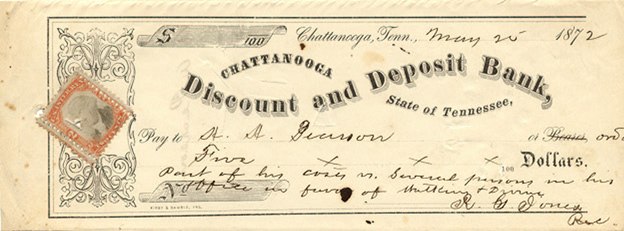 $ 100 Chattanooga, Tenn., May 25 1872
CHATTANOOGA
Discount and Deposit Bank,
State of Tennessee,
Pay to A. A. Pearson or Bearer, order
Five x x x 100 Dollars.
Part of his costs vs. Several persons in his
office in favor of Watkins &
R. G. Jones
Rec